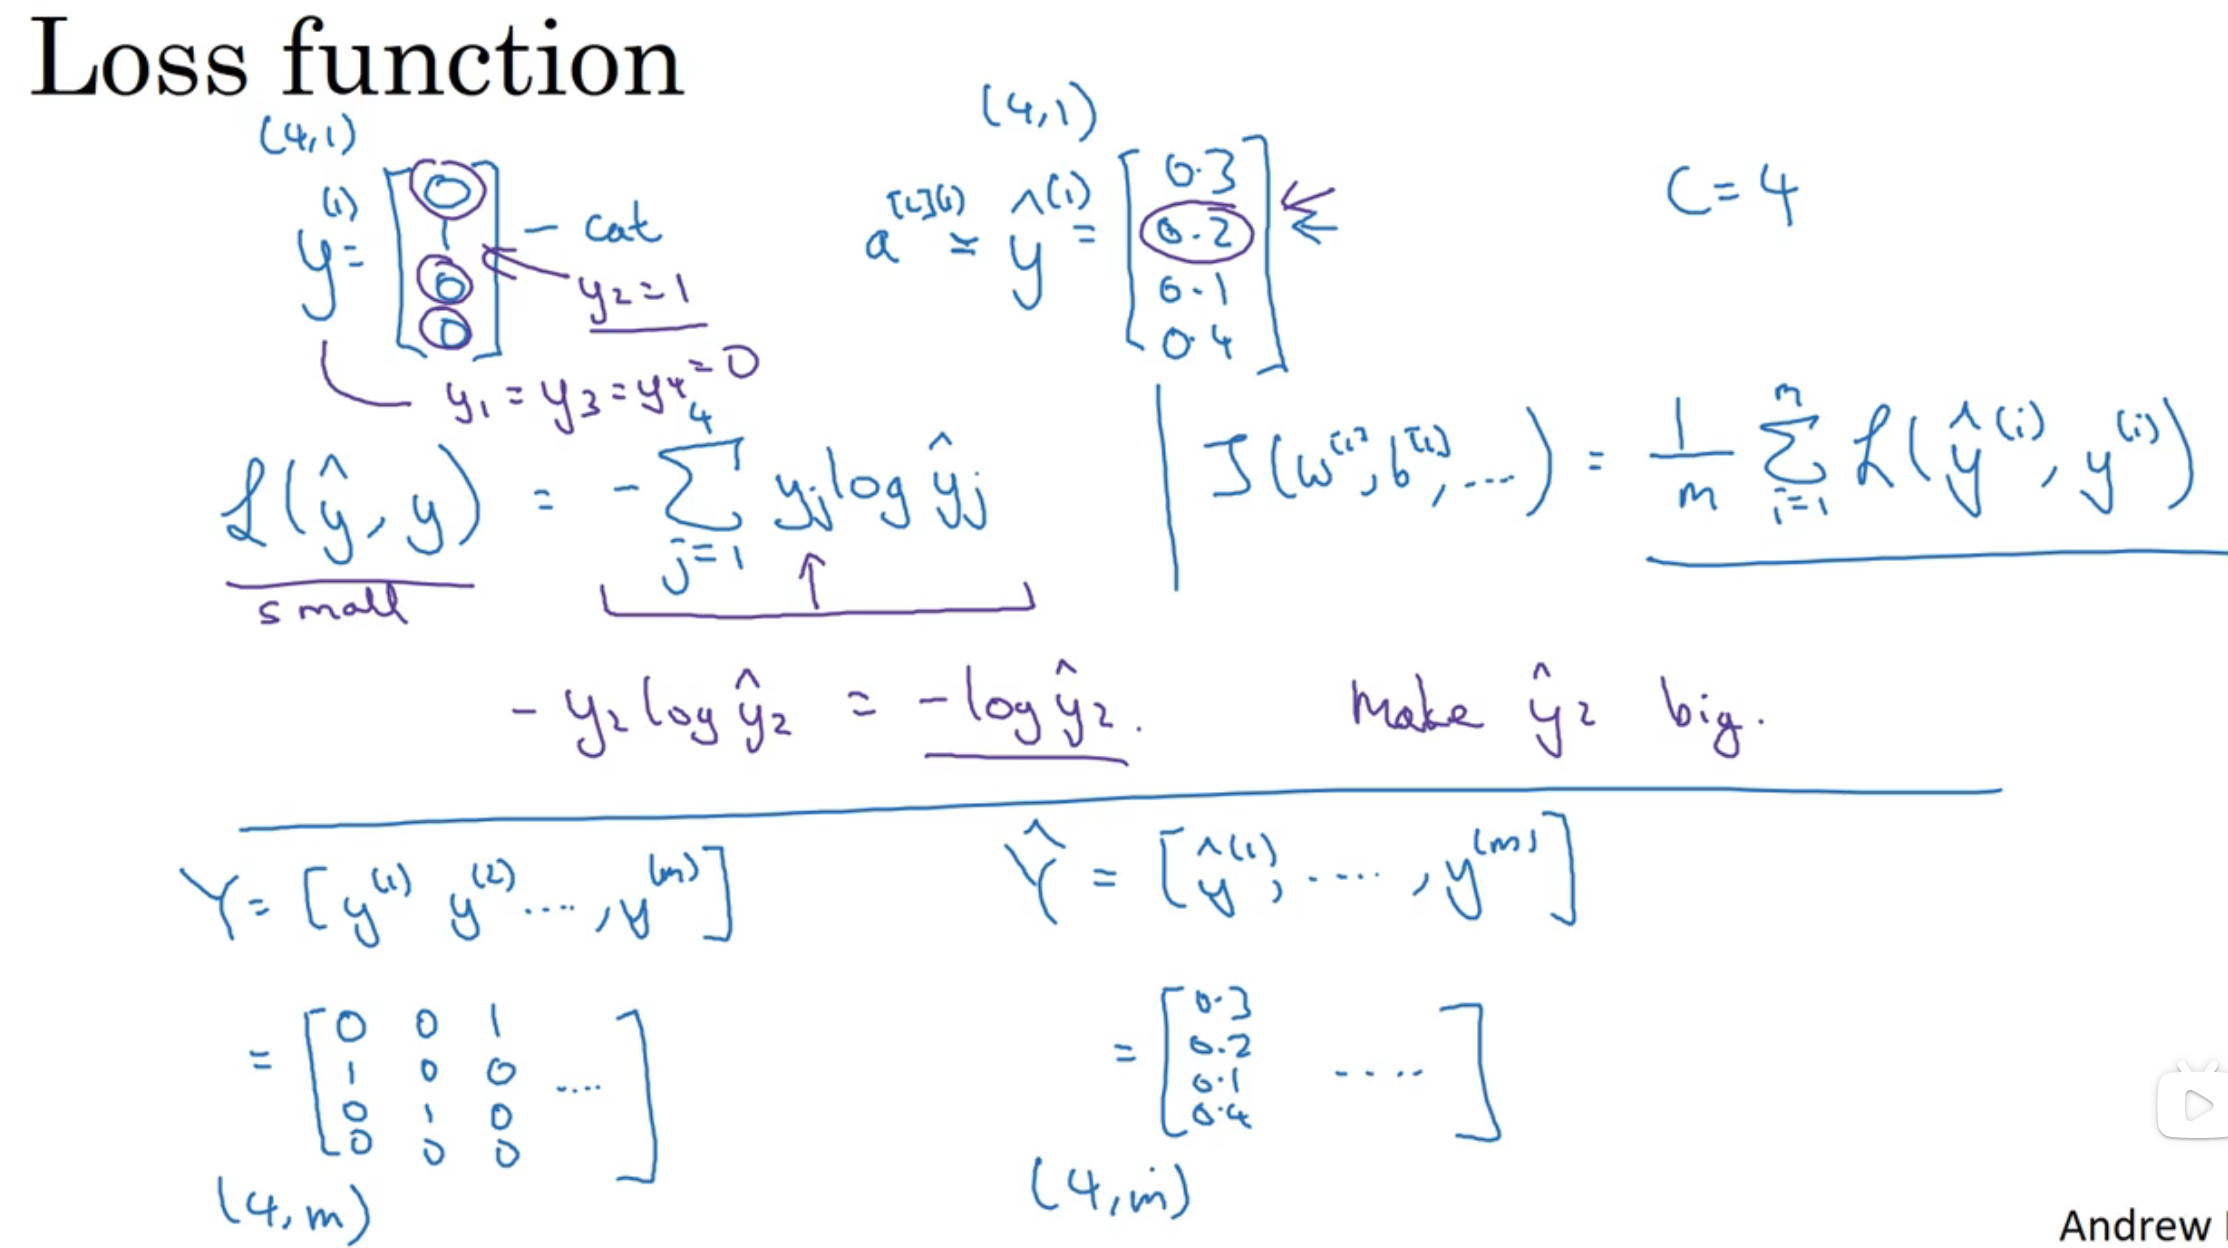 Loss function
(4,1)
y^(1) = [0 1 0 0] - cat
y₂ = 1
y₁ = y₃ = y₄ = 0
(4,1)
a^[L](1) = ŷ^(1) = [0.3 0.2 0.1 0.4]
C = 4
ℒ(ŷ, y) = - ∑_{j=1}^{4} y_j log ŷ_j
small
J(w^[1], b^[1], ...) = 1/m ∑_{i=1}^{m} ℒ(ŷ^(i), y^(i))
- y₂ log ŷ₂ = - log ŷ₂. Make ŷ₂ big.
Y = [y^(1) y^(2) ...., y^(m)]
= [0 0 1
1 0 0 ....
0 1 0
0 0 0]
(4, m)
Ŷ = [ŷ^(1), ...., y^(m)]
= [0.3
0.2 ....
0.1
0.4]
(4, m)
Andrew